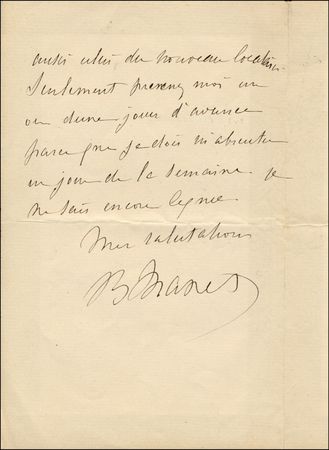 du nouveau locataire
Seulement prevenez moi un
ou deux jours d'avance
parce que je dois m'absenter
un jour de la semaine je
ne sais encore lequel
Mes salutations